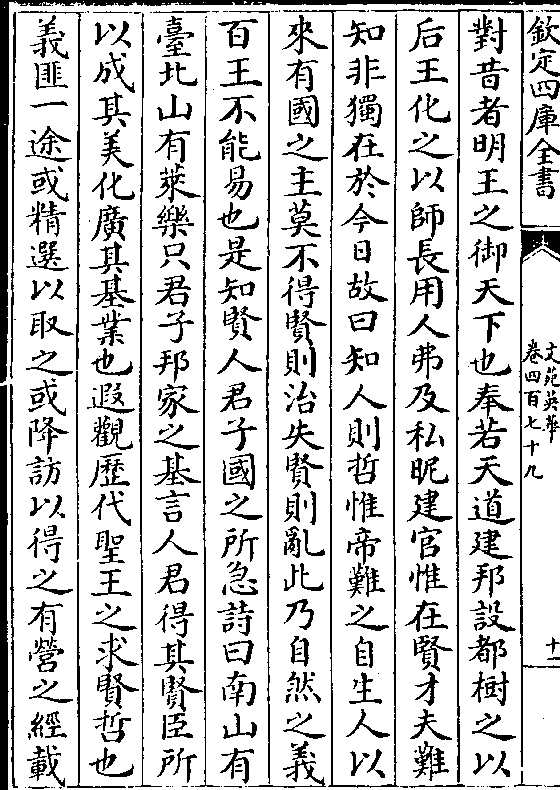 欽定四庫全書
文苑英華
卷四百七十九
十一
對昔者明王之御天下也奉若天道建邦設都樹之以
后王化之以師長用人弗及私昵建官惟在賢才夫難
知非獨在於今日故曰知人則哲惟帝難之自生人以
來有國之主莫不得賢則治失賢則亂此乃自然之義
百王不能易也是知賢人君子國之所急詩曰南山有
臺北山有萊樂只君子邦家之基言人君得其賢臣所
以成其美化廣其基業也遐觀歷代聖王之求賢哲也
義匪一途或精選以取之或降訪以得之有營之經載